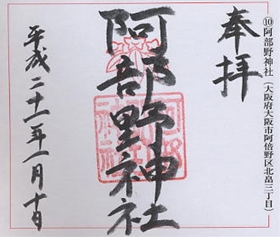 ⑩阿部野神社(大阪府大阪市阿倍野区北畠三丁目)
奉拝
阿部野神社
平成二十一年一月十日